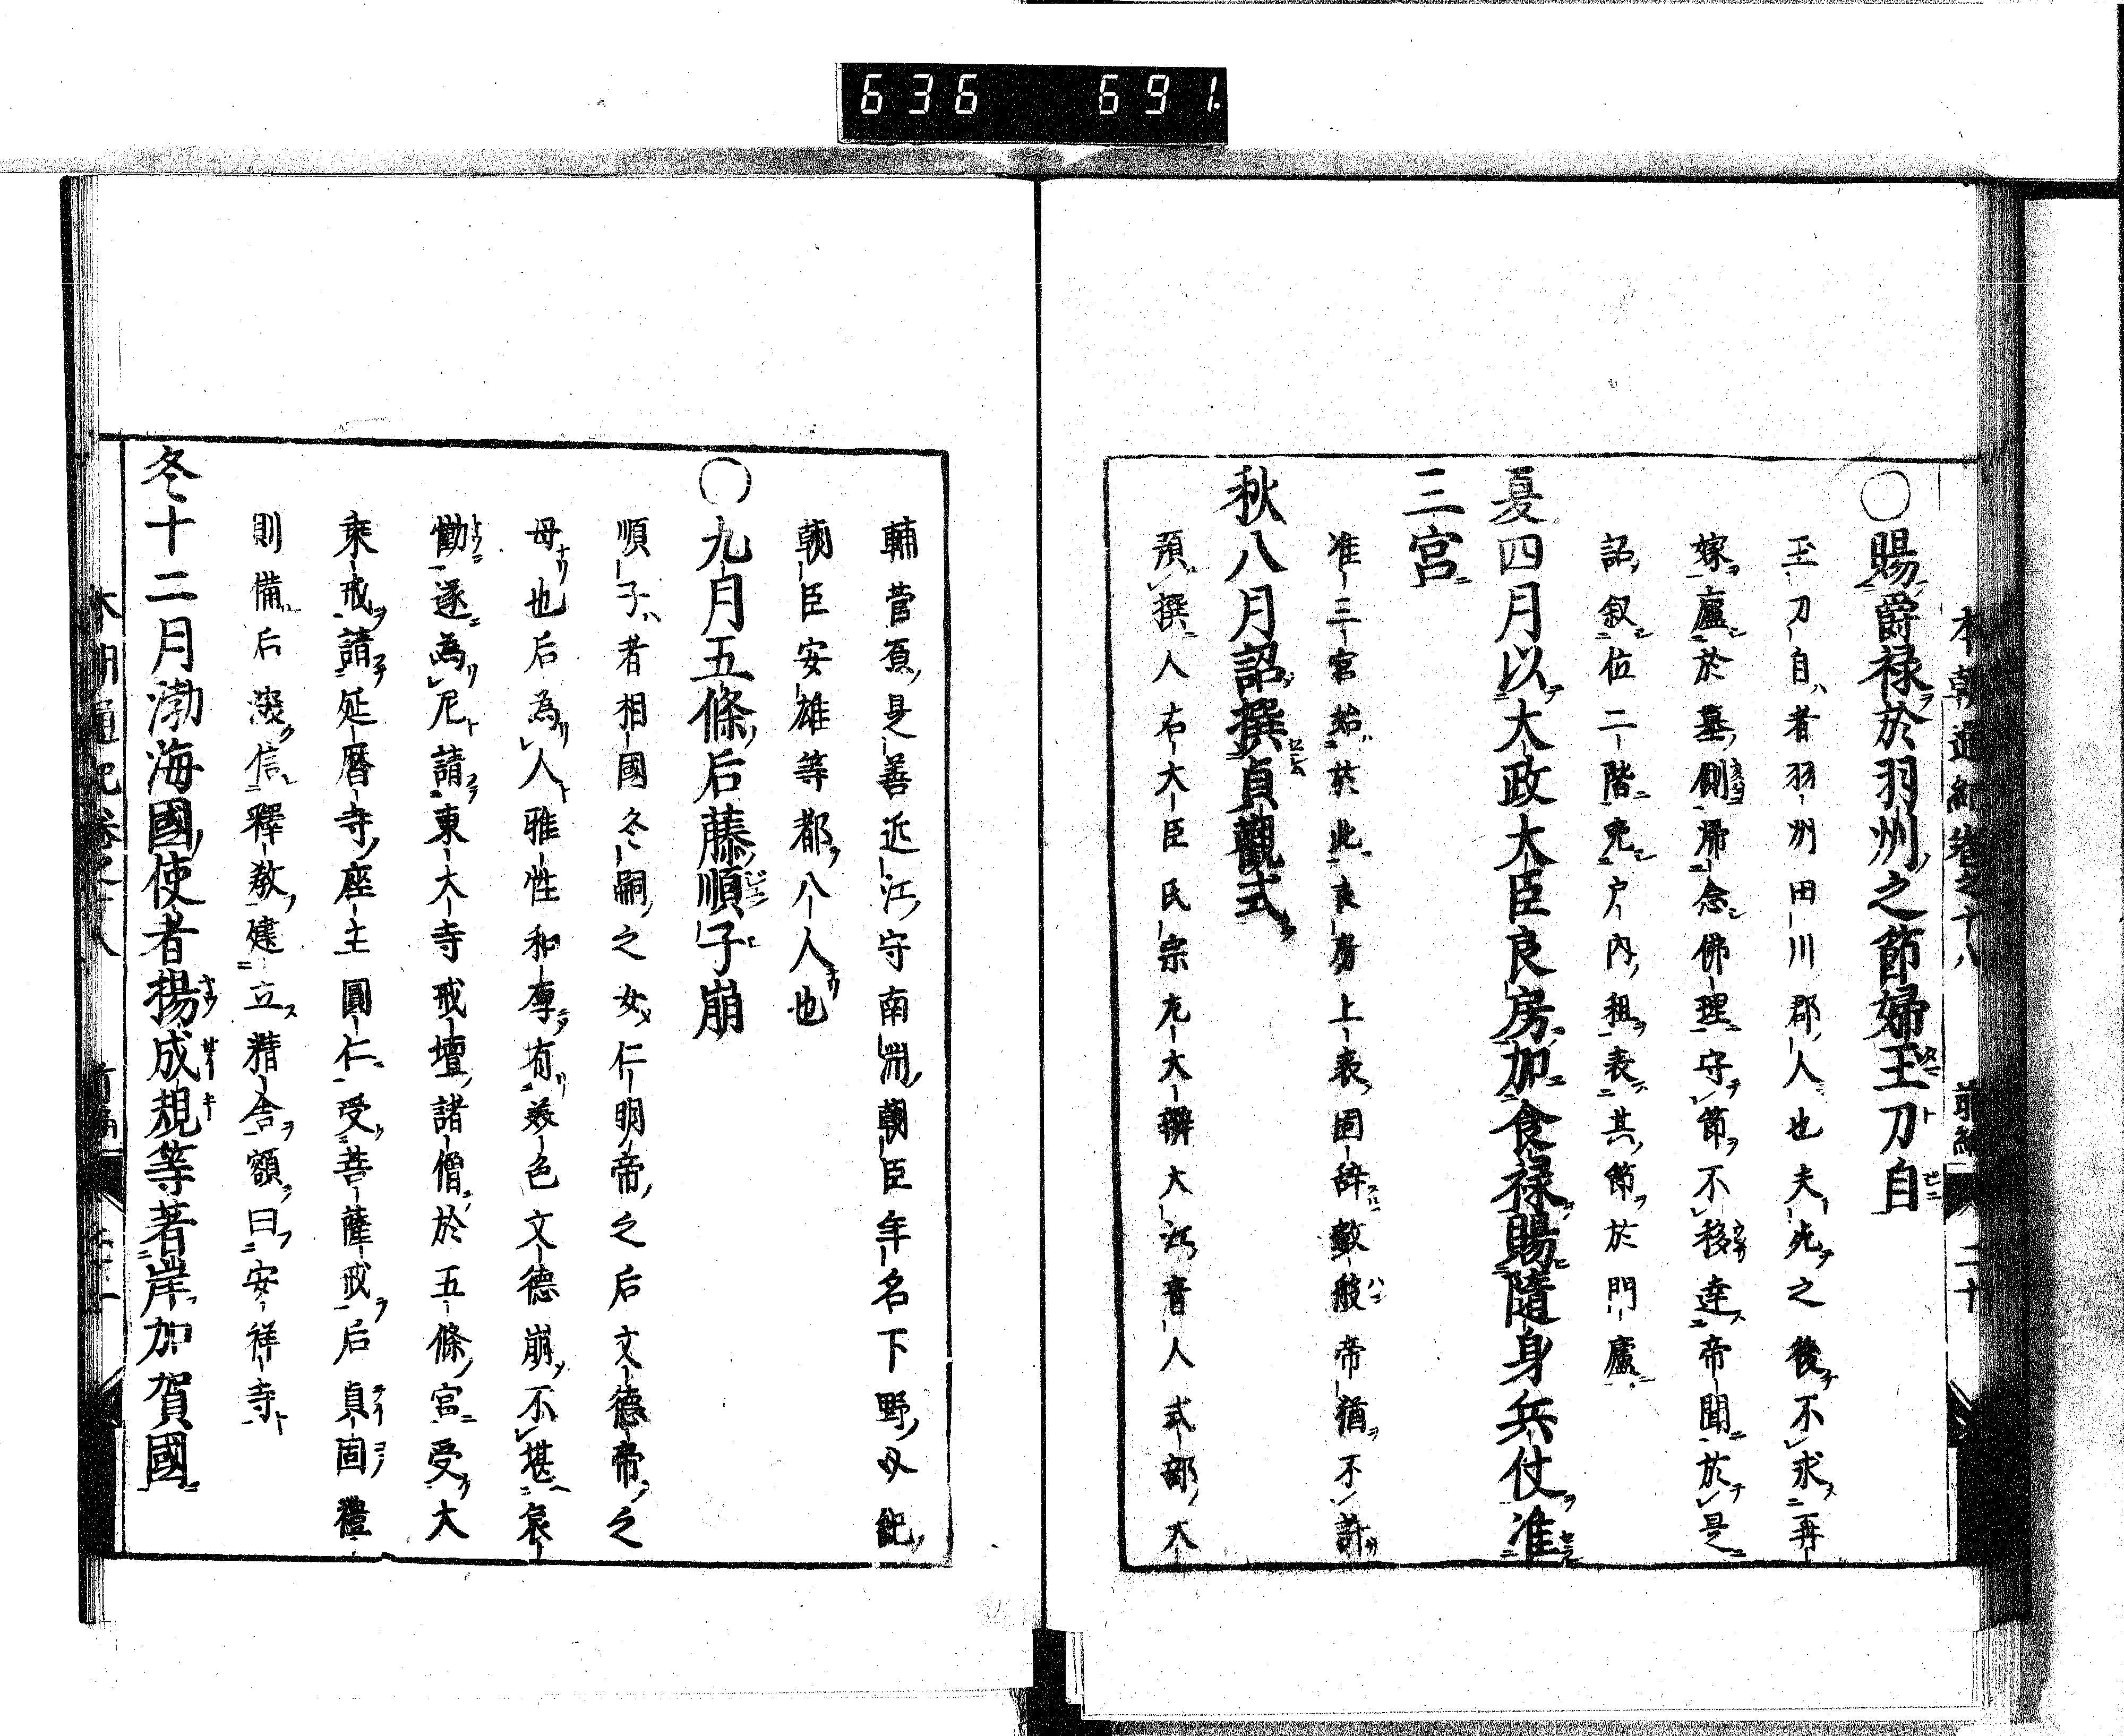 636 691
本朝通紀卷之十八 前編 二十
○賜爵禄於羽州之節婦玉刀自
玉刀自者羽州田川郡人也夫死之後不求再
嫁廬於墓側帰念佛理守節不移達帝聞於是
詔叙位二階免戸内租表其節於門廬
夏四月以大政大臣良房加食禄賜隨身兵仗准
三宮
准三宮始於此良房上表固辞数般帝猶不許
秋八月詔撰貞觀式
預撰人右大臣氏宗左大辨大江音人式部大
輔菅原是善近江守南淵朝臣年名下野守紀
朝臣安雄等都八人也
○九月五條后藤順子崩
順子者相國冬嗣之女仁明帝之后文德帝之
母也后為人雅性和厚有美色文德崩不堪哀
慟遂為尼請東大寺戒壇諸僧於五條宮受大
乗戒請延曆寺座主圓仁受菩薩戒后貞固禮
則備后深信釋教建立精舎額曰安祥寺
冬十二月渤海國使者揚成規等著岸加賀國